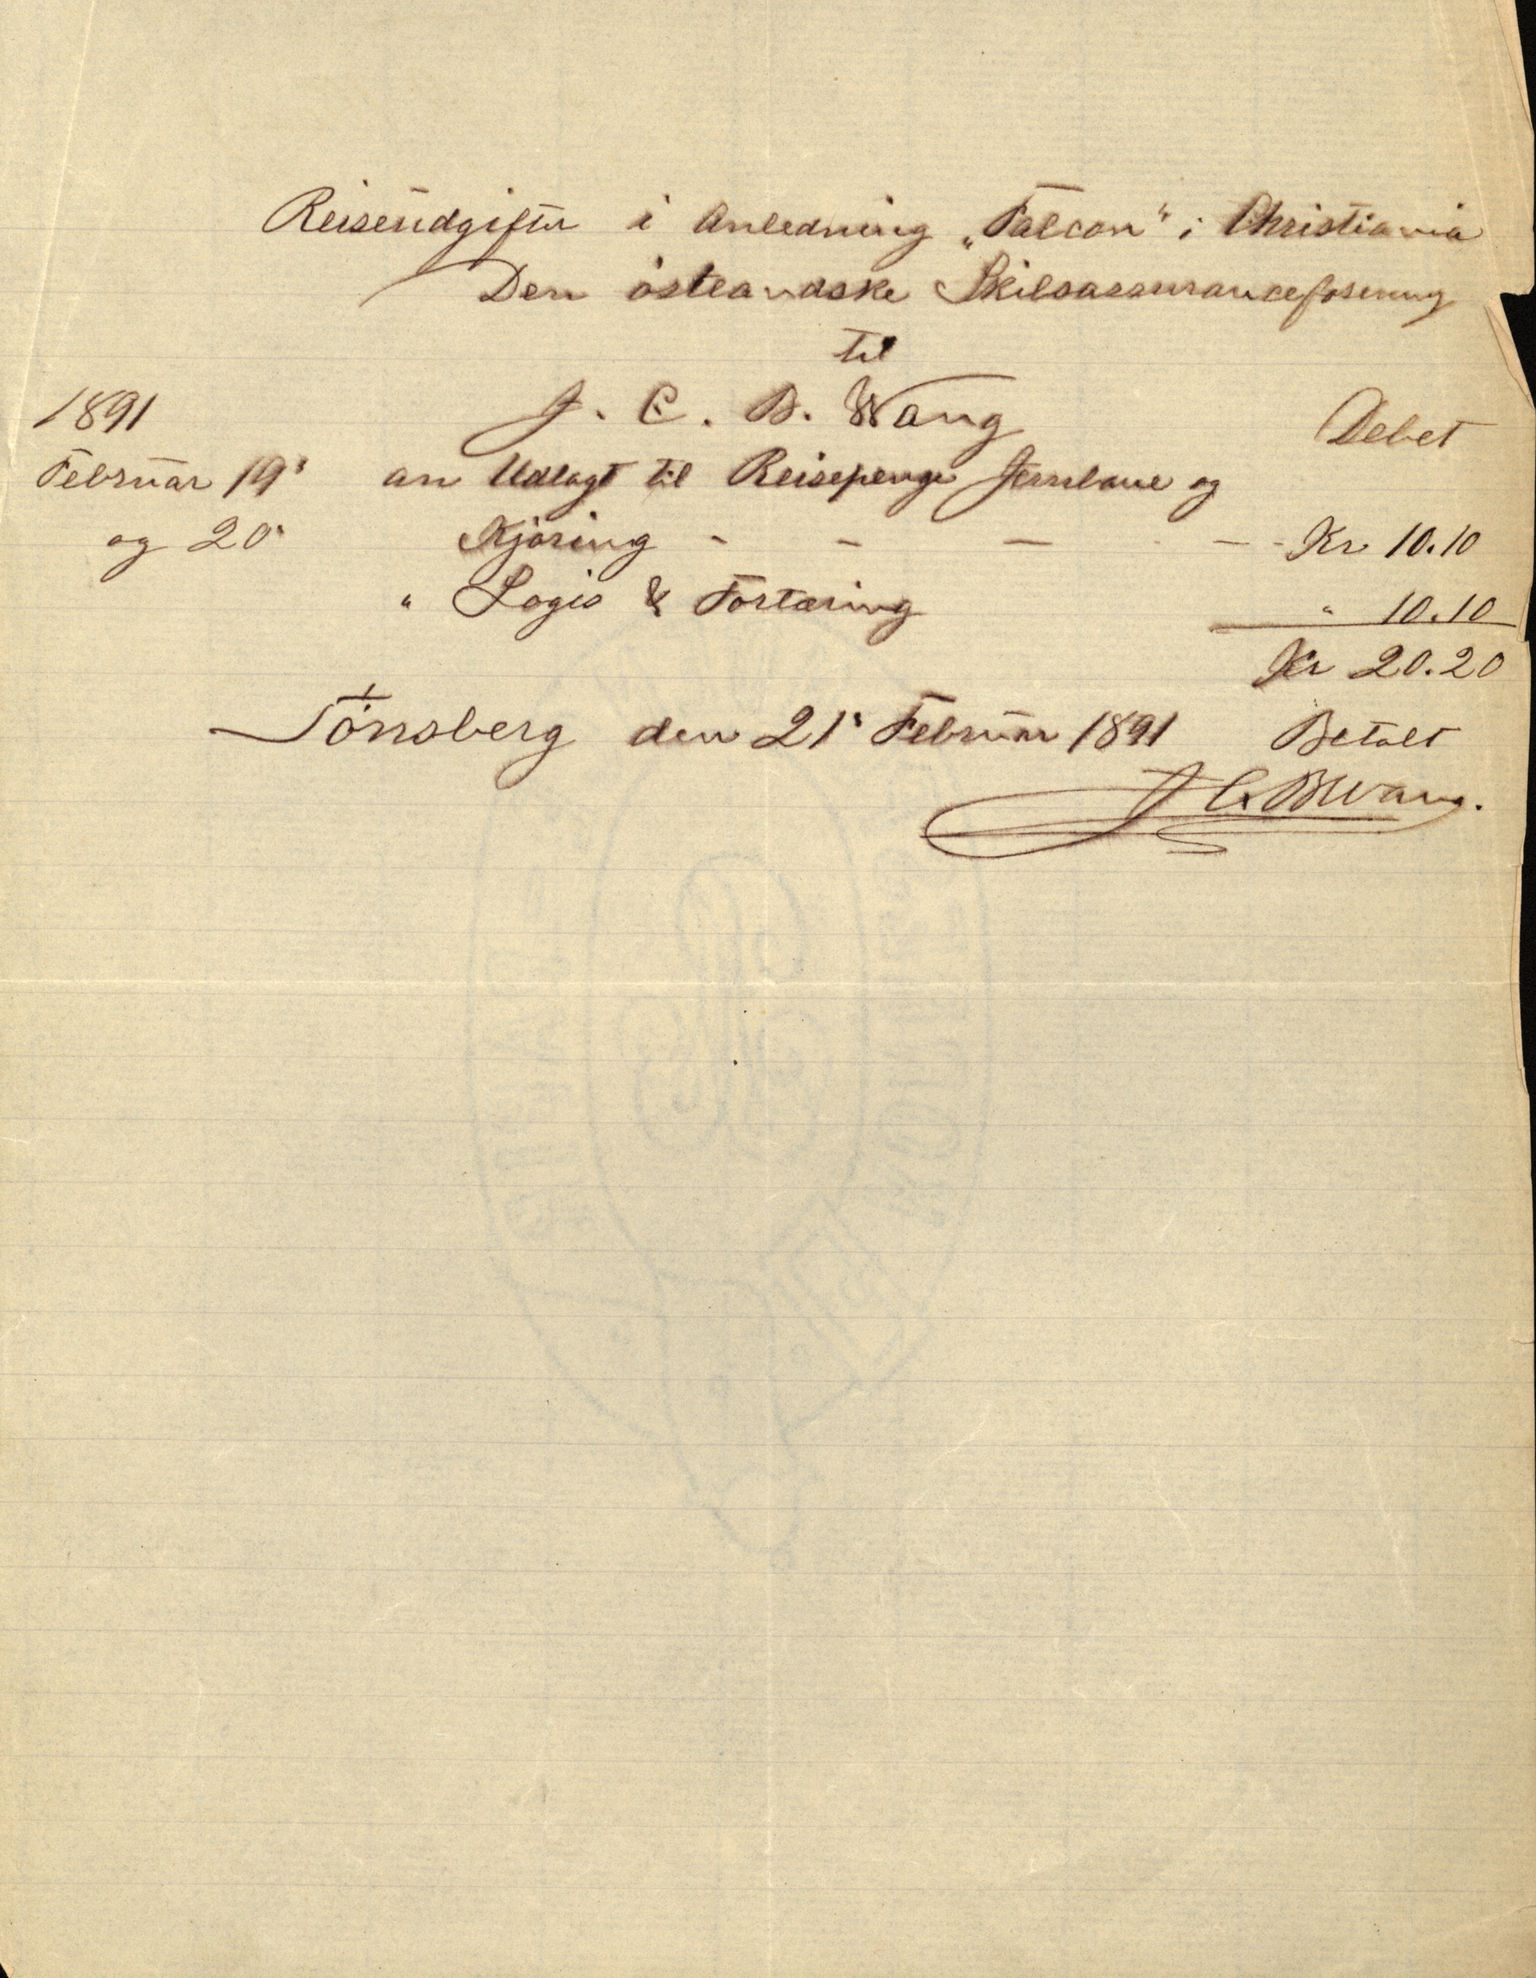 Reiseudgifter i Anledning „Falcon“ i Christiania
Den östlandske Skibsassuranceforening
til
1891 J. C. B. Wang Debet
Februar 19' an Udlagt til Reisepenge Jernbane og
og 20' Kjöring - - - - - - Kr 10.10
" Logis & Fortæring " 10.10
Kr 20.20
Tönsberg den 21' Februar 1891 Betalt
J C. B Wang.